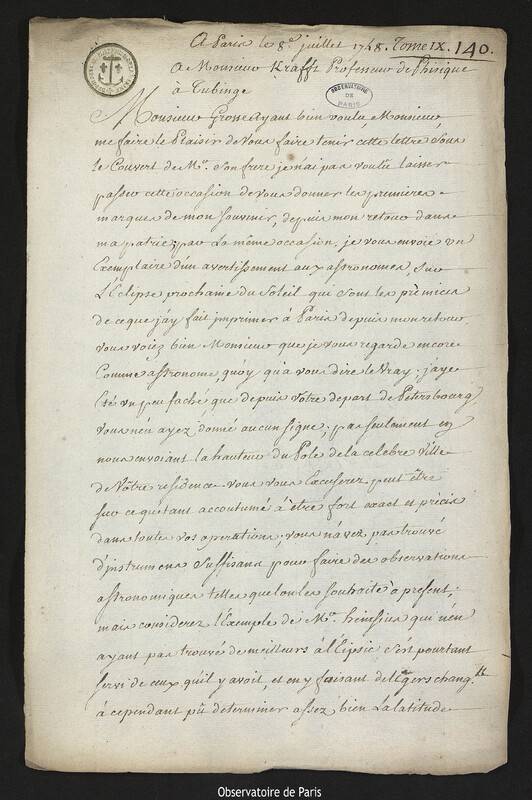 A Paris le 8.e juillet 1748. Tome IX. 140.
A Monsieur Krafft Professeur de Phisique
à Tubinge
OBSERVATOIRE
DE
PARIS
Monsieur Grosse ayant bien voulu, Monsieur
me faire le Plaisir de vous faire tenir cette lettre sous
le Couvert de Mr. Son frere je n'ai pas voulu laisser
passer cette occasion de vous donner les premieres
marques de mon souvenir, depuis mon retour dans
ma patrie; par la même occasion, je vous envoie un
Exemplaire d'un avertissement aux astronomes, sur
l'Eclipse prochaine du Soleil qui sont les prémices
de ce que j'ay fait imprimer à Paris depuis mon retour,
vous voiez bien Monsieur que je vous regarde encore
Comme astronome, quoy qu'a vous dire le Vray, j'aye
été un peu faché, que depuis Vôtre depart de Petersbourg
vous n'en ayez donné aucun signe; pas seulement en
nous envoiant la hauteur du Pole de la celebre ville
de Vôtre residence. vous vous Excuserez peut être
sur ce qu'etant accoutumé à être fort exact et précis
dans toutes vos operations, vous n'avez pas trouvé
d'instrumens suffisans pour faire des observations
astronomiques telles que l'on les souhaite à present;
mais considerez l'Exemple de Mr. heinsius qui n'en
ayant pas trouvé de meilleurs à Lipsic s'est pourtant
servi de ceux qu'il y avoit, et en y faisant de legers chang.ts
à cependant pû determiner assez bien la latitude
Observatoire de Paris